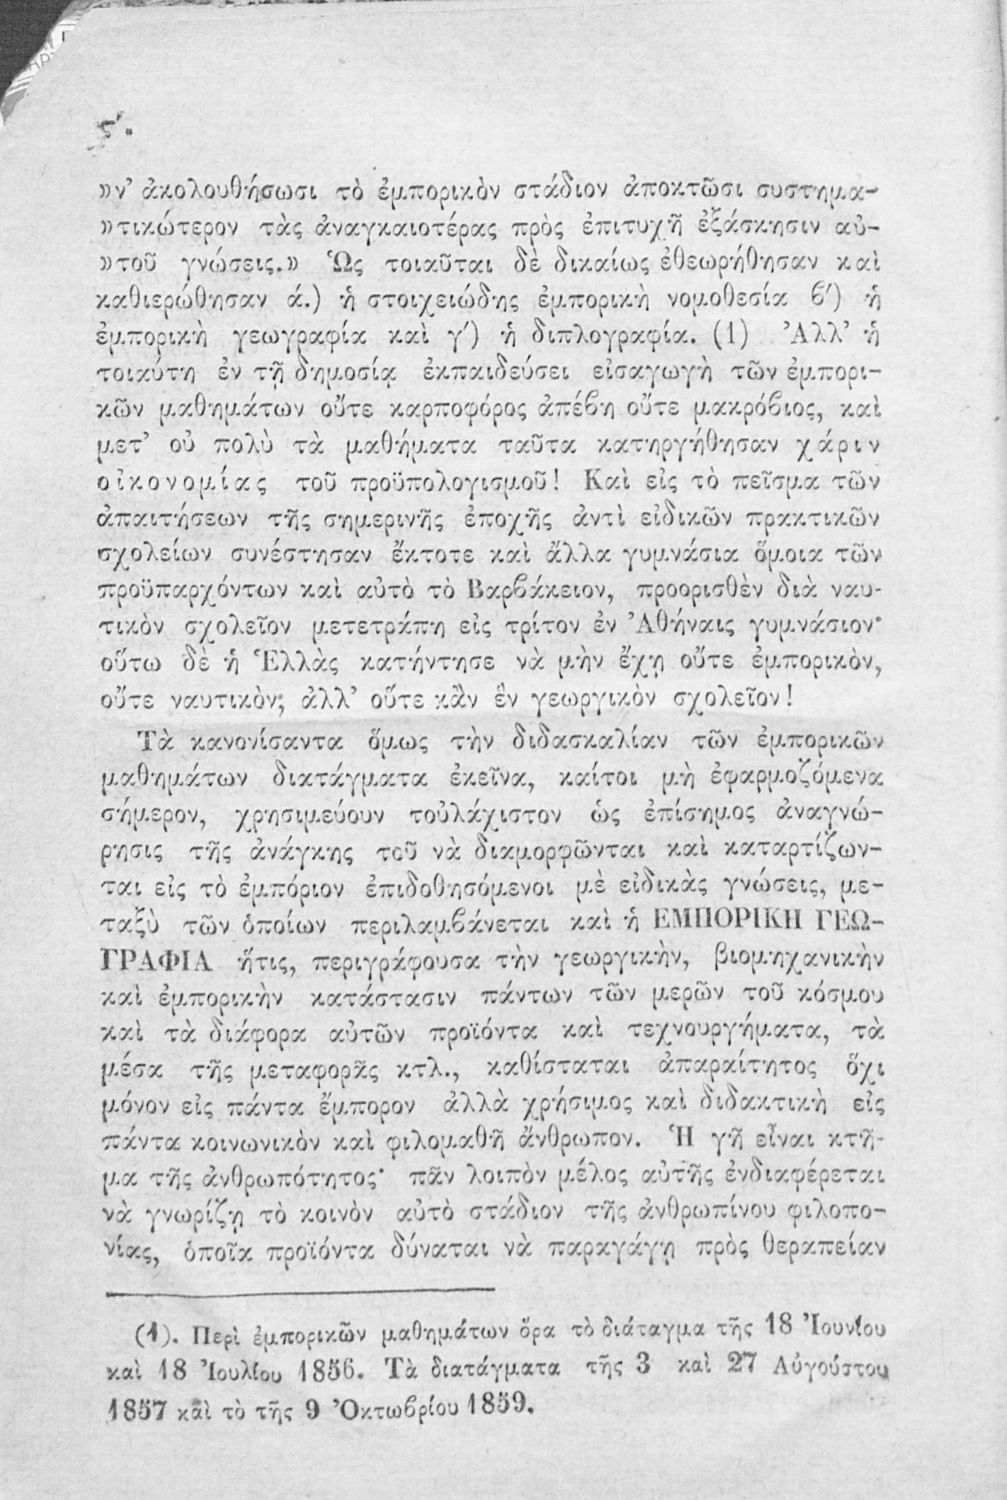 ς′.
»ν’ ἀκολουθήσωσι τὸ ἐμπορικὸν στάδιον ἀποκτῶσι συστημα-
»τικώτερον τὰς ἀναγκαιοτέρας πρὸς ἐπιτυχῆ ἐξάσκησιν αὐ-
»τοῦ γνώσεις.» Ὡς τοιαῦται δὲ δικαίως ἐθεωρήθησαν καὶ
καθιερώθησαν ά.) ἡ στοιχειώδης ἐμπορικὴ νομοθεσία β′) ἡ
ἐμπορικὴ γεωγραφία καὶ γ′) ἡ διπλογραφία. (1) Ἀλλ’ ἡ
τοιαύτη ἐν τῇ δημοσίᾳ ἐκπαιδεύσει εἰσαγωγὴ τῶν ἐμπορι-
κῶν μαθημάτων οὔτε καρποφόρος ἀπέβη οὔτε μακρόβιος, καὶ
μετ’ οὐ πολὺ τὰ μαθήματα ταῦτα κατηργήθησαν χάριν
οἰκονομίας τοῦ προϋπολογισμοῦ! Καὶ εἰς τὸ πεῖσμα τῶν
ἀπαιτήσεων τῆς σημερινῆς ἐποχῆς ἀντὶ εἰδικῶν πρακτικῶν
σχολείων συνέστησαν ἔκτοτε καὶ ἄλλα γυμνάσια ὅμοια τῶν
προϋπαρχόντων καὶ αὐτὸ τὸ Βαρβάκειον, προορισθὲν διὰ ναυ-
τικὸν σχολεῖον μετετράπη εἰς τρίτον ἐν Ἀθήναις γυμνάσιον·
οὕτω δὲ ἡ Ἑλλὰς κατήντησε νὰ μὴν ἔχῃ οὔτε ἐμπορικὸν,
οὔτε ναυτικὸν; ἀλλ’ οὔτε κἂν ἓν γεωργικὸν σχολεῖον!
Τὰ κανονίσαντα ὅμως τὴν διδασκαλίαν τῶν ἐμπορικῶν
μαθημάτων διατάγματα ἐκεῖνα, καίτοι μὴ ἐφαρμοζόμενα
σήμερον, χρησιμεύουν τοὐλάχιστον ὡς ἐπίσημος ἀναγνώ-
ρησις τῆς ἀνάγκης τοῦ νὰ διαμορφῶνται καὶ καταρτίζων-
ται εἰς τὸ ἐμπόριον ἐπιδοθησόμενοι μὲ εἰδικὰς γνώσεις, με-
ταξὺ τῶν ὁποίων περιλαμβάνεται καὶ ἡ ΕΜΠΟΡΙΚΗ ΓΕΩ-
ΓΡΑΦΙΑ ἥτις, περιγράφουσα τὴν γεωργικὴν, βιομηχανικὴν
καὶ ἐμπορικὴν κατάστασιν πάντων τῶν μερῶν τοῦ κόσμου
καὶ τὰ διάφορα αὐτῶν προϊόντα καὶ τεχνουργήματα, τὰ
μέσα τῆς μεταφορᾶς κτλ., καθίσταται ἀπαραίτητος ὄχι
μόνον εἰς πάντα ἔμπορον ἀλλὰ χρήσιμος καὶ διδακτικὴ εἰς
πάντα κοινωνικὸν καὶ φιλομαθῆ ἄνθρωπον. Ἡ γῆ εἶναι κτῆ-
μα τῆς ἀνθρωπότητος· πᾶν λοιπὸν μέλος αὐτῆς ἐνδιαφέρεται
νὰ γνωρίζῃ τὸ κοινὸν αὐτὸ στάδιον τῆς ἀνθρωπίνου φιλοπο-
νίας, ὁποῖα προϊόντα δύναται νὰ παραγάγῃ πρὸς θεραπείαν
(1). Περὶ ἐμπορικῶν μαθημάτων ὅρα τὸ διάταγμα τῆς 18 Ἰουνίου
καὶ 18 Ἰουλίου 1856. Τὰ διατάγματα τῆς 3 καὶ 27 Αὐγούστου
1857 καὶ τὸ τῆς 9 Ὀκτωβρίου 1859.